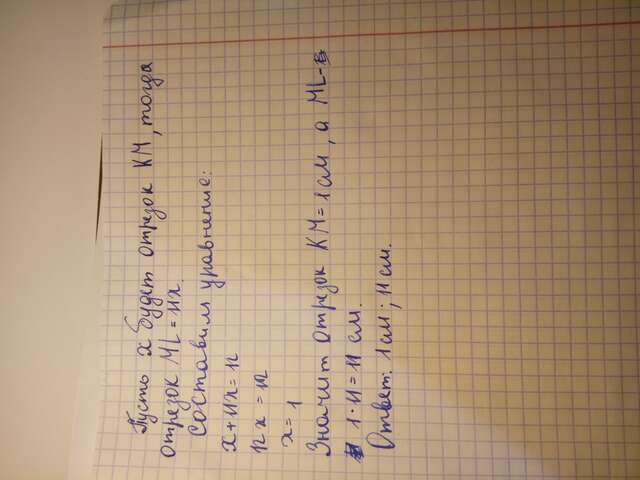 Пусть x будет отрезок KM, тогда
отрезок ML = 11x.
Составим уравнение:
x+11x=12
12x=12
x=1
Значит отрезок KM=1см, а ML-
1·11=11 см.
Ответ: 1см; 11см.